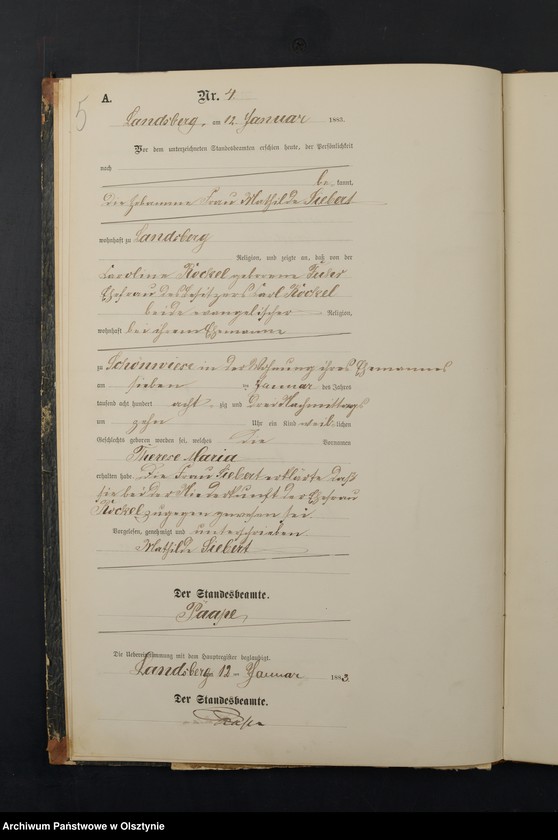 5
A. Nr. 4
Landsberg, am 12 Januar 1883.
Vor dem unterzeichneten Standesbeamten erschien heute, der Persönlichkeit
nach
be kannt,
die Hebamme Frau Mathilde Siebert
wohnhaft zu Landsberg
Religion, und zeigte an, daß von der
Caroline Röckel geborene
Ehefrau des Besitzers Carl Röckel
beide evangelischer Religion,
wohnhaft bei ihrem Ehemanne
zu Schönwiese in der Wohnung ihres Ehemannes
am sieben ten Januar des Jahres
tausend acht hundert acht zig und drei Nachmittags
um zehn Uhr ein Kind weib lichen
Geschlechts geboren worden sei, welches die Vornamen
Therese Maria
erhalten habe. Die Frau Siebert erklärte daß
sie bei der Niederkunft der Ehefrau
Röckel zugegen gewesen sei.
Vorgelesen, genehmigt und unterschrieben
Mathilde Siebert
Der Standesbeamte.
Paape
Die Uebereinstimmung mit dem Hauptregister beglaubigt.
Landsberg am 12 ten Januar 1883
Der Standesbeamte.
Paape
Archiwum Państwowe w Olsztynie